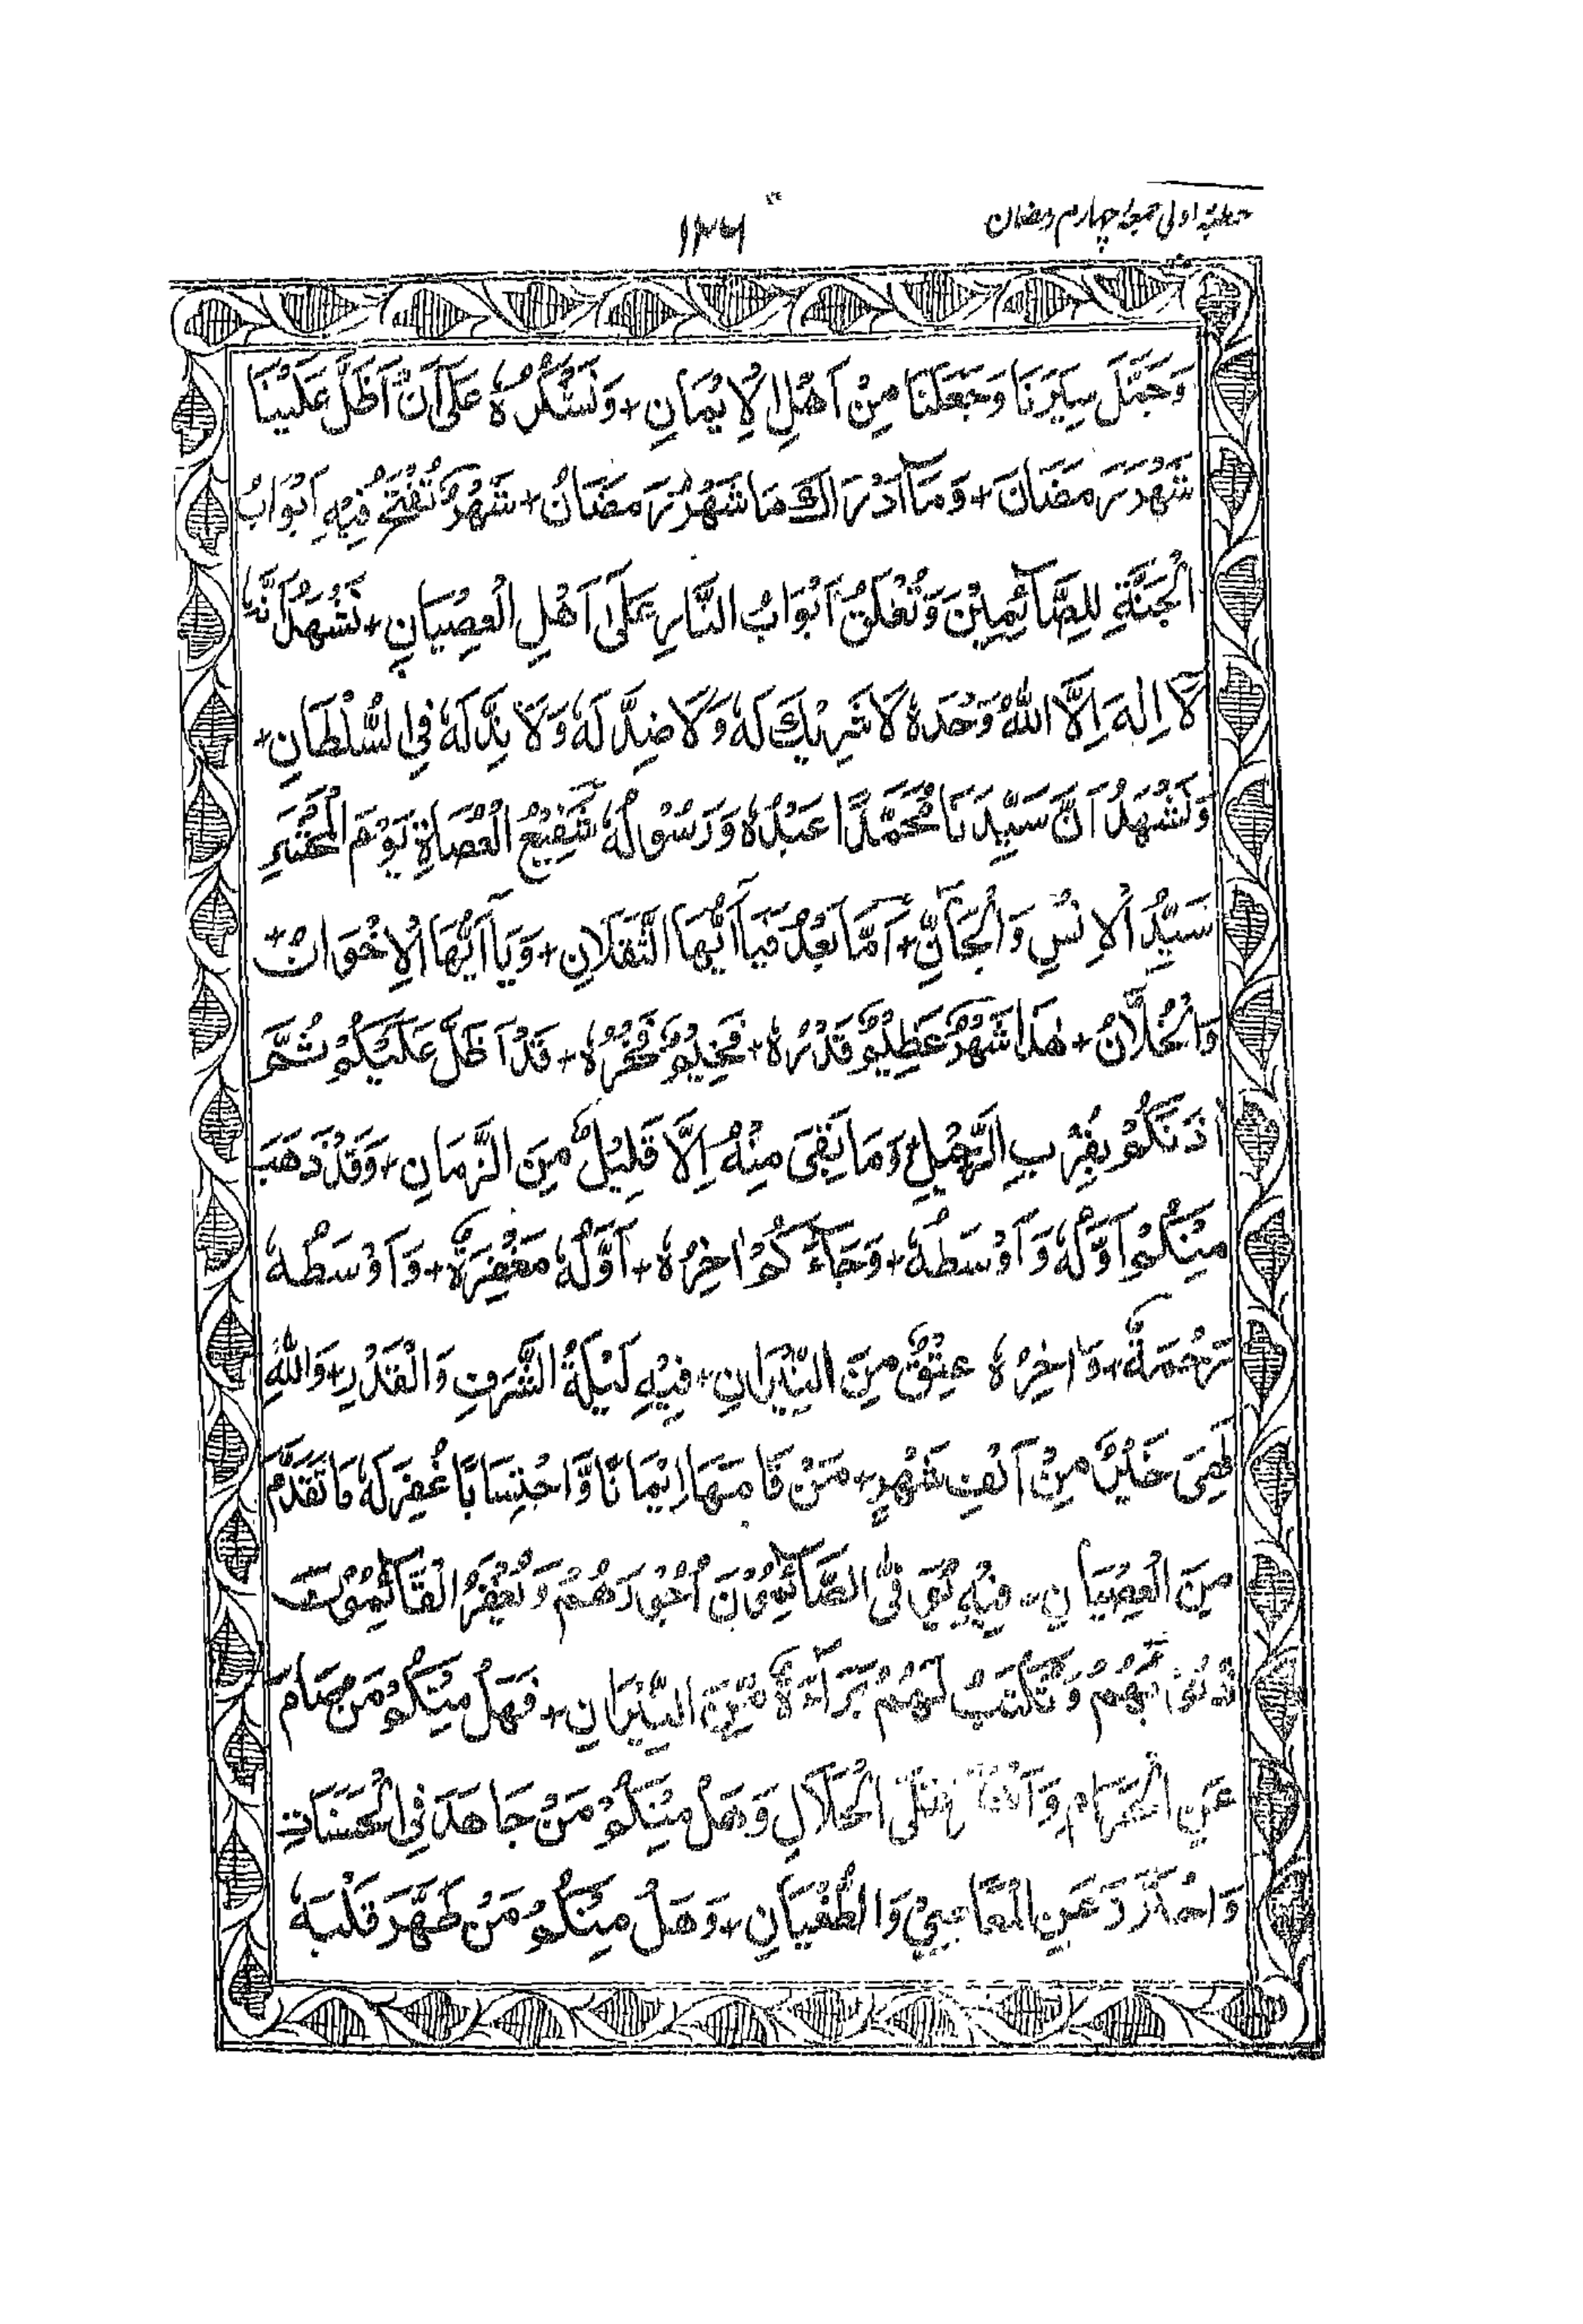 خطبۂ اولی جمعۂ چہارم رمضان
۱۲۶
وَجَمَّلَ سِيَرَنَا وَجَعَلَنَا مِنْ اَهْلِ الْاِيْمَانِ + وَنَشْكُرُهٗ عَلٰى اَنْ اَظَلَّ عَلَيْنَا
شَهْرَ رَمَضَانَ + وَمَآ اَدْرَاكَ مَا شَهْرُ رَمَضَانُ + شَهْرٌ تُفْتَحُ فِيْهِ اَبْوَابُ
الْجَنَّةِ لِلصَّآئِمِيْنَ وَتُغْلَقُ اَبْوَابُ النَّارِ عَلٰٓى اَهْلِ الْعِصْيَانِ + نَشْهَدُ اَنَّهٗ
لَآ اِلٰهَ اِلَّا اللّٰهُ وَحْدَهٗ لَا شَرِيْكَ لَهٗ وَلَا ضِدَّ لَهٗ وَلَا نِدَّ لَهٗ فِي السُّلْطَانِ +
وَنَشْهَدُ اَنَّ سَيِّدَنَا مُحَمَّدًا عَبْدُهٗ وَرَسُوْلُهٗ شَفِيْعُ الْعُصَاةِ يَوْمَ الْمَحْشَرِ
سَيِّدُ الْاِنْسِ وَالْجَآنِّ + اَمَّا بَعْدُ فَيَآ اَيُّهَا الثَّقَلَانِ + وَيَآ اَيُّهَا الْاِخْوَانُ +
وَالْخُلَّانُ + هٰذَا شَهْرٌ عَظِيْمٌ قَدْرُهٗ + فَخِيْمٌ فَخْرُهٗ + قَدْ اَظَلَّ عَلَيْكُمْ ثُمَّ
اٰذَنَكُمْ بِقُرْبِ الرَّحِيْلِ وَمَا بَقِىَ مِنْهُ اِلَّا قَلِيْلٌ مِنَ الزَّمَانِ + وَقَدْ ذَهَبَ
مِنْكُمْ اَوَّلُهٗ وَاَوْسَطُهٗ + وَجَآءَكُمْ اٰخِرُهٗ + اَوَّلُهٗ مَغْفِرَةٌ + وَاَوْسَطُهٗ
رَحْمَةٌ + وَاٰخِرُهٗ عِتْقٌ مِنَ النِّيْرَانِ + فِيْهِ لَيْلَةُ الشَّرَفِ وَالْقَدْرِ + وَاللّٰهِ
لَهِىَ خَيْرٌ مِنْ اَلْفِ شَهْرٍ + مَنْ قَامَهَا اِيْمَانًا وَّاحْتِسَابًا غُفِرَ لَهٗ مَا تَقَدَّمَ
مِنَ الْعِصْيَانِ + فِيْهِ يُوَفَّى الصَّآئِمُوْنَ اُجُوْرَهُمْ وَيُغْفَرُ الْقَآئِمُوْنَ
ذُنُوْبَهُمْ وَتُكْتَبُ لَهُمْ بَرَآءَةٌ مِّنَ النِّيْرَانِ + فَهَلْ مِنْكُمْ مَنْ صَامَ
عَنِ الْحَرَامِ عَلَى الْحَلَالِ وَهَلْ مِنْكُمْ مَنْ جَاهَدَ فِي الْحَسَنَاتِ
عَنِ الْمَعَاصِيْ وَالطُّغْيَانِ + وَهَلْ مِنْكُمْ مَنْ طَهَّرَ قَلْبَهٗ